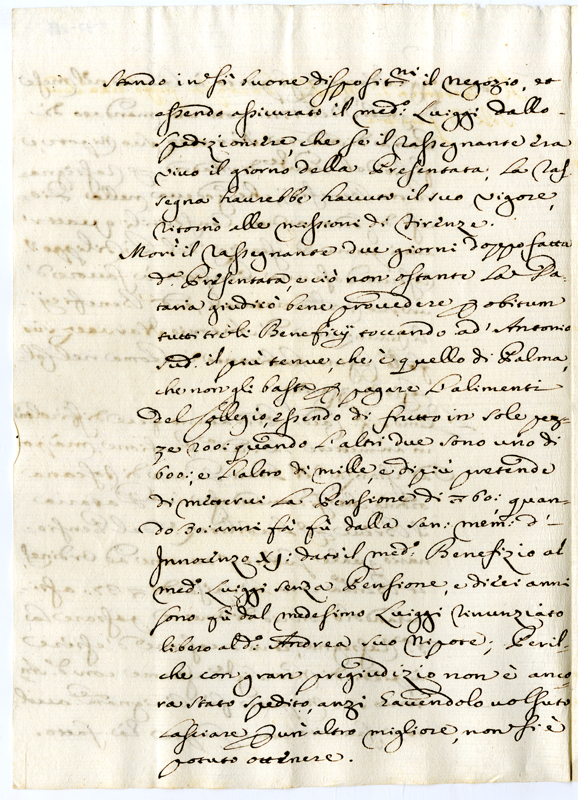 Stando in sì buone disposit.ni il negozio, et
essendo assicurato il med.º Luiggi dallo
spedizioniere, che se il rassegnante era
vivo il giorno della Presentata, la ras-
segna haurebbe havuto il suo vigore,
ritornò alle missioni di Firenze.
Morì il rassegnante due giorni doppo fatta
d.ª Presentata, e ciò non ostante la Da-
taria giudicò bene provedere p obitum
tutti trè li Beneficij toccando ad Antonio
sud.º il più tenue, che è quello di Palma,
che non gli basta p pagare l'alimenti
del Collegio, essendo di frutto in sole pez-
ze 200: quando l'altri due sono uno di
600: e l'altro di mille, e di più pretende
di mettervi la Pensione di 60: quan-
do 30: anni fà fù dalla san: mem: d'
Innocenzo XI: dato il med.º Benefizio al
med.º Luiggi senza Pensione, e dieci anni
sono fù dal medesimo Luiggi rinunziato
libero al d.º Andrea suo Nipote; Peril-
che con gran pregiudizio non è anco-
ra stato spedito, anzi havendolo volsuto
lasciare p un altro migliore, non si è
potuto ottenere.